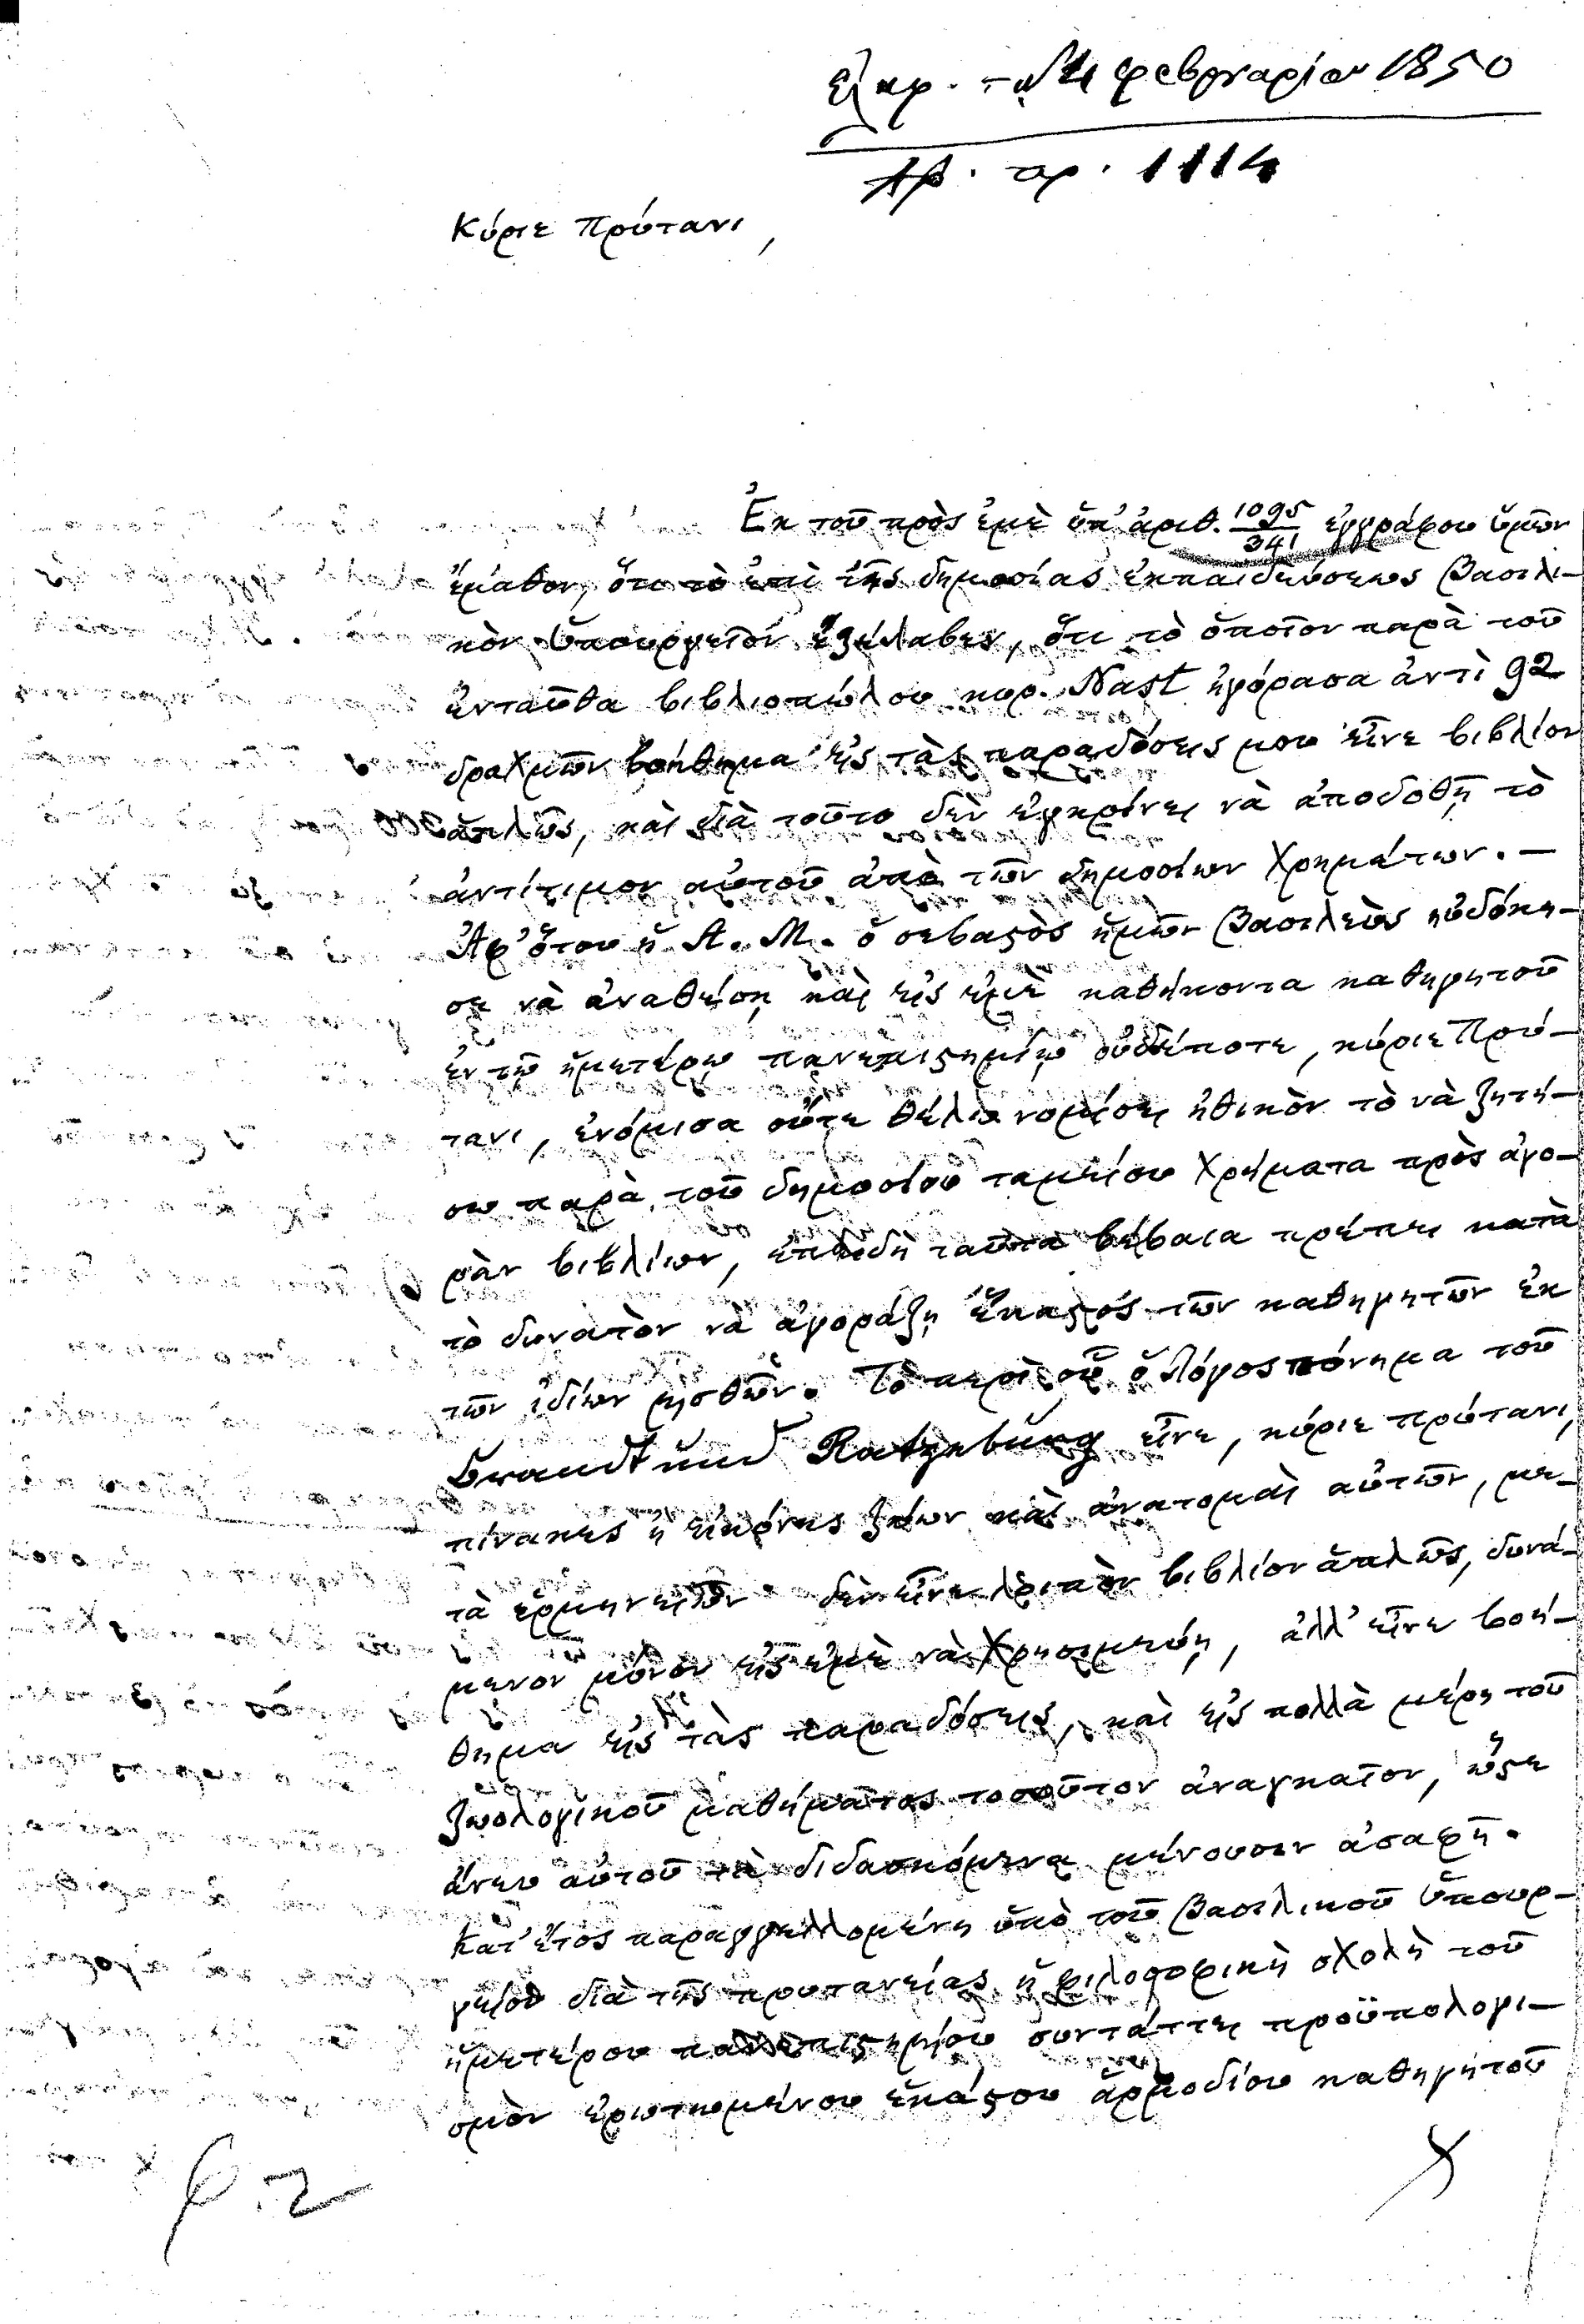 φεβρουαρίου 1850
Αρ. πρ. 1114
Κύριε Πρύτανι,
Ἐκ τοῦ πρὸς ἐμὲ ὑπ' ἀριθ. 1095/341 ἐγγράφου ὑμῶν
ἔμαθον, ὅτι τὸ ἐπὶ τῆς δημοσίας ἐκπαιδεύσεως βασιλι-
κὸν ὑπουργεῖον ἐξέλαβεν, ὅτι τὸ ὁποῖον παρὰ τοῦ
ἐνταῦθα βιβλιοπώλου κυρ. Nast ἠγόρασα ἀντὶ 92
δραχμῶν βοήθημα εἰς τὰς παραδόσεις μου εἶνε βιβλίον
ἁπλῶς, καὶ διὰ τοῦτο δὲν ἐγκρίνει νὰ ἀποδοθῇ τὸ
ἀντίτιμον αὐτοῦ ἀπὸ τῶν δημοσίων χρημάτων. —
Ἀφ' ὅτου ἡ Α. Μ. ὁ σεβαςὸς ἡμῶν βασιλεὺς ηὐδόκη-
σε νὰ ἀναθέσῃ καὶ εἰς ἐμὲ καθήκοντα καθηγητοῦ
ἐν τῷ ἡμετέρῳ πανεπιςημίῳ οὐδέποτε, κύριε Πρύ-
τανι, ἐνόμισα οὔτε θέλω νομίσει ἠθικὸν τὸ νὰ ζητή-
σω παρὰ τοῦ δημοσίου ταμείου χρήματα πρὸς ἀγο-
ρὰν βιβλίων, ἐπειδὴ ταῦτα βέβαια πρέπει κατὰ
τὸ δυνατὸν νὰ ἀγοράζῃ ἕκαςος τῶν καθηγητῶν ἐκ
τῶν ἰδίων μισθῶν. Τὸ περὶ οὗ ὁ λόγος πόνημα τοῦ
Brandt und Ratzeburg εἶνε, κύριε πρύτανι,
πίνακες ἢ εἰκόνες ζώων καὶ ἀνατομαὶ αὐτῶν, με-
τὰ ἑρμηνειῶν· δὲν εἶνε λοιπὸν βιβλίον ἁπλῶς, δυνά-
μενον μόνον εἰς ἐμὲ νὰ χρησιμεύῃ, ἀλλ' εἶνε βοή-
θημα εἰς τὰς παραδόσεις, καὶ εἰς πολλὰ μέρη τοῦ
ζωολογικοῦ μαθήματος τοσοῦτον ἀναγκαῖον, ὥςε
ἄνευ αὐτοῦ τὰ διδασκόμενα μένουσιν ἀσαφῆ.
Κατ' ἔτος παραγγελλομένη ὑπὸ τοῦ βασιλικοῦ ὑπουρ-
γείου διὰ τῆς πρυτανείας ἡ φιλοσοφικὴ σχολὴ τοῦ
ἡμετέρου πανεπιςημίου συντάττει προϋπολογι-
σμὸν ἐρωτωμένου ἑκάςου ἁρμοδίου καθηγητοῦ